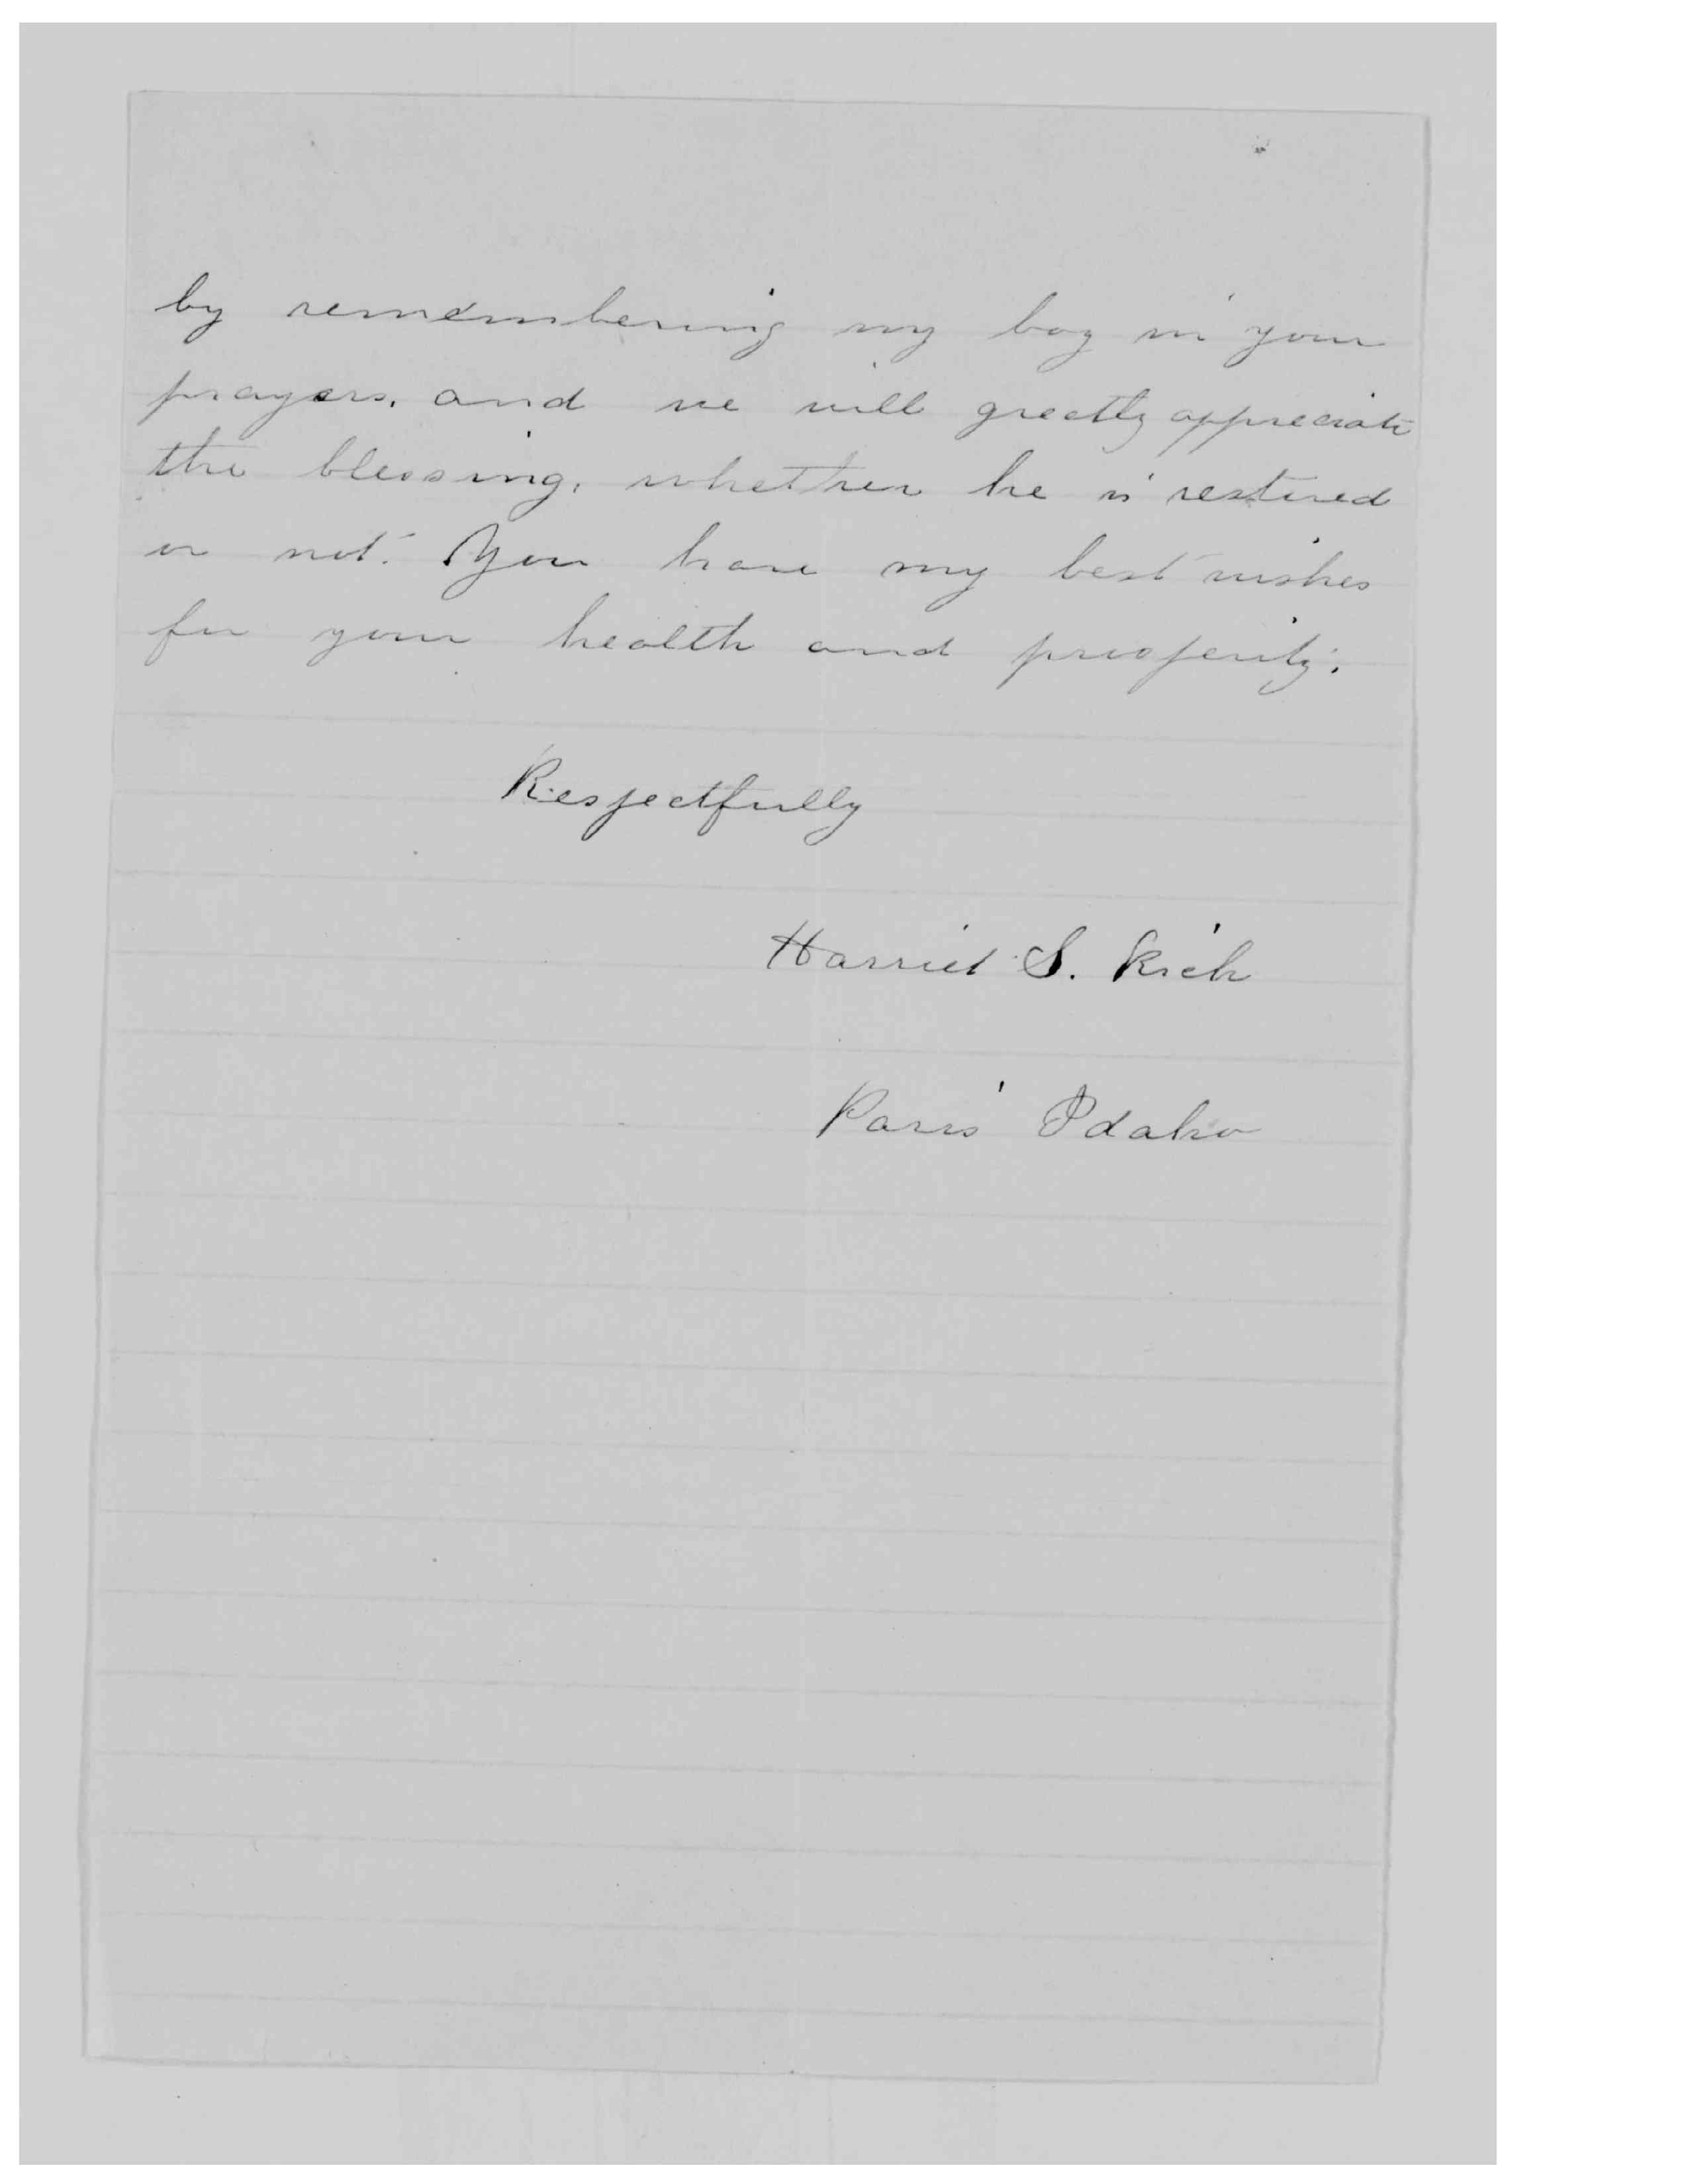 by remembering my boy in your
prayers. and we will greatly appreciate
the blessing. whether he is restored
or not. You have my best wishes
for your health and prosperity.
Respectfully
Harriet S. Rich
Paris Idaho